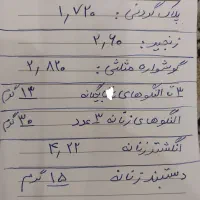 پلاک گردنی : ۱,۷۲۰
زنجیر : ۲,۶۰
گوشواره مثلثی : ۲,۸۲۰
۳ تا النگوهای بچگانه ۱۳ گرم
النگوهای زنانه ۳ عدد ۳۰ گرم
انگشتر زنانه ۴,۲۲
دستبند زنانه ۱۵ گرم